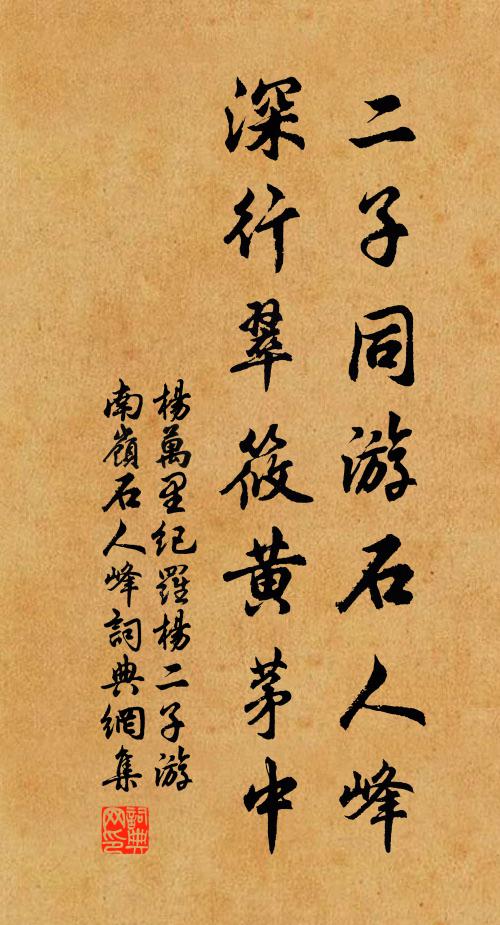 二子同游石人峰
深行翠筱黄茅中
楊萬里紀羅楊二子游
南嶺石人峰詞典網集
詞典
网印